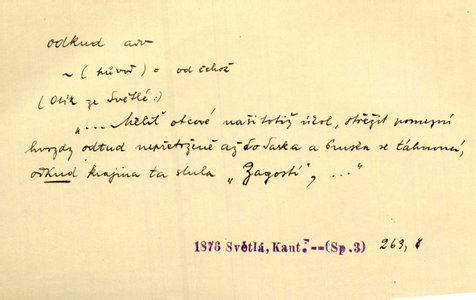 odkud adv
~ (původ) = od čehož
(Otík ze Světlé:)
„... Měliť otcové naši totiž úkol, střežit pomezní
hvozdy odtud nepřetrženě až do Saska a Pruska se táhnoucí,
odkud krajina ta slula „Zagostí", ..."
1876 Světlá, Kant. -- (Sp.3) 263, 8